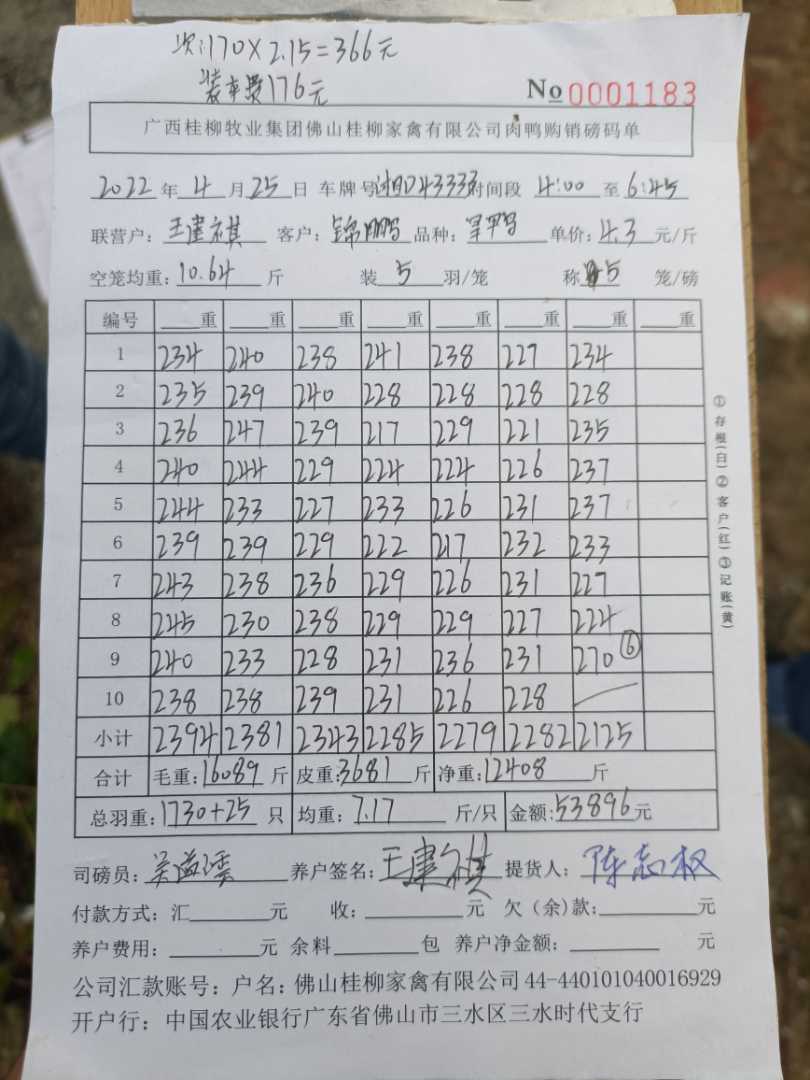 次:170×2.15=366元
装车费176元
No 0001183
广西桂柳牧业集团佛山桂柳家禽有限公司肉鸭购销磅码单
2022年4月25日 车牌号湘D43333时间段 4:00 至 6:45
联营户:王建祺 客户:锦鹏 品种: 单价:4.3元/斤
空笼均重:10.64斤 装5羽/笼 称5笼/磅
编号 重 重 重 重 重 重 重 重
1 234 240 238 241 238 227 234
2 235 239 240 228 228 228 228
3 236 247 239 217 229 221 235
4 240 244 229 224 224 226 237
5 244 233 227 233 226 231 237
6 239 239 229 222 217 232 233
7 243 238 236 229 226 231 227
8 245 230 238 229 229 227 224
9 240 233 228 231 236 231 270 ⑥
10 238 238 239 231 226 228
小计 2394 2381 2343 2285 2279 2282 2125
合计 毛重:16089斤 皮重:3681斤 净重:12408斤
总羽重:1730+25只 均重:7.17斤/只 金额:53896元
司磅员: 养户签名:王建祺 提货人:陈志权
付款方式:汇 元 收: 元 欠(余)款: 元
养户费用: 元 余料 包 养户净金额: 元
公司汇款账号:户名:佛山桂柳家禽有限公司44-440101040016929
开户行:中国农业银行广东省佛山市三水区三水时代支行
①存根(白)②客户(红)③记账(黄)